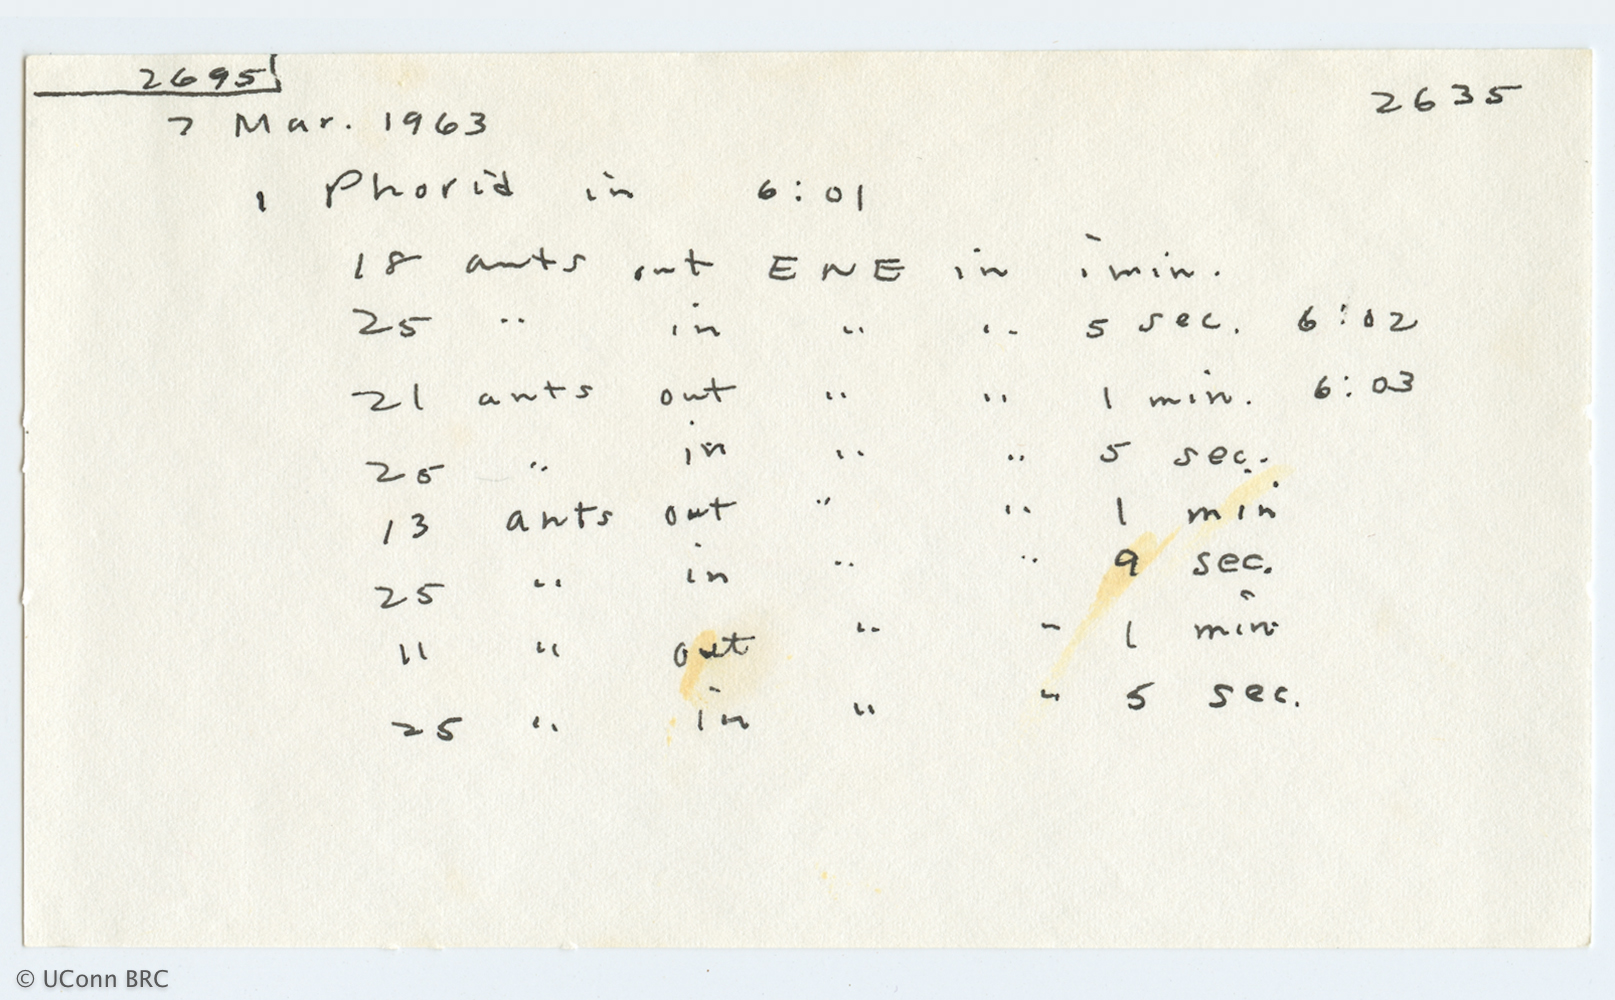 2695
2635
7 Mar. 1963
1 Phorid in 6:01
18 ants out ENE in 1 min.
25 " in " " 5 sec. 6:02
21 ants out " " 1 min. 6:03
25 " in " " 5 sec.
13 ants out " " 1 min
25 " in " " 9 sec.
11 " out " " 1 min
25 " in " " 5 sec.
© UConn BRC